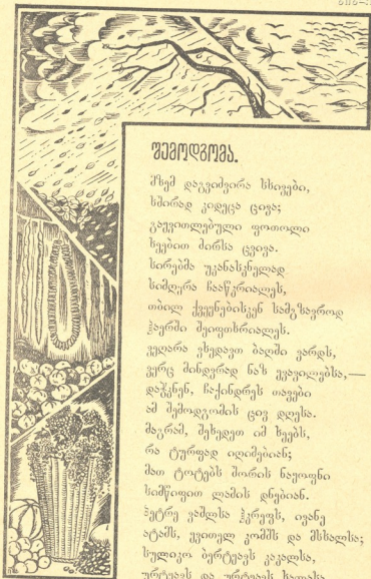 შემოდგომა.
მზემ დაგვიძვირა სხივები,
ხშირად კიდეცა ცივა;
გაყვითლებული ფოთოლი
ხეებით ძირსა ცვივა.
სირებმა უკანასკნელად
სიმღერა ჩააწკრიალეს,
თბილ ქვეყნებისკენ სამგზავროდ
ჰაერში შეიფთხრიალეს.
ვეღარა ვხედავთ ბაღში ვარდს,
ვერც მინდვრად ნაზ ყვავილებსა,—
დაჭკნენ, ჩაქინდრეს თავები
ამ შემოდგომის ცივ დღესა.
მაგრამ, შეხედეთ იმ ხეებს,
რა ტურფად იღიმებიან;
მათ ტოტებს შორის ნაყოფნი
სიმწიფით ლამის დნებიან.
პეტრე ვაშლსა ჰკრეფს, ივანე
ატამს, ყვითელ კომშს და მსხალსა;
სულიკო ბერტყავს კაკალსა,